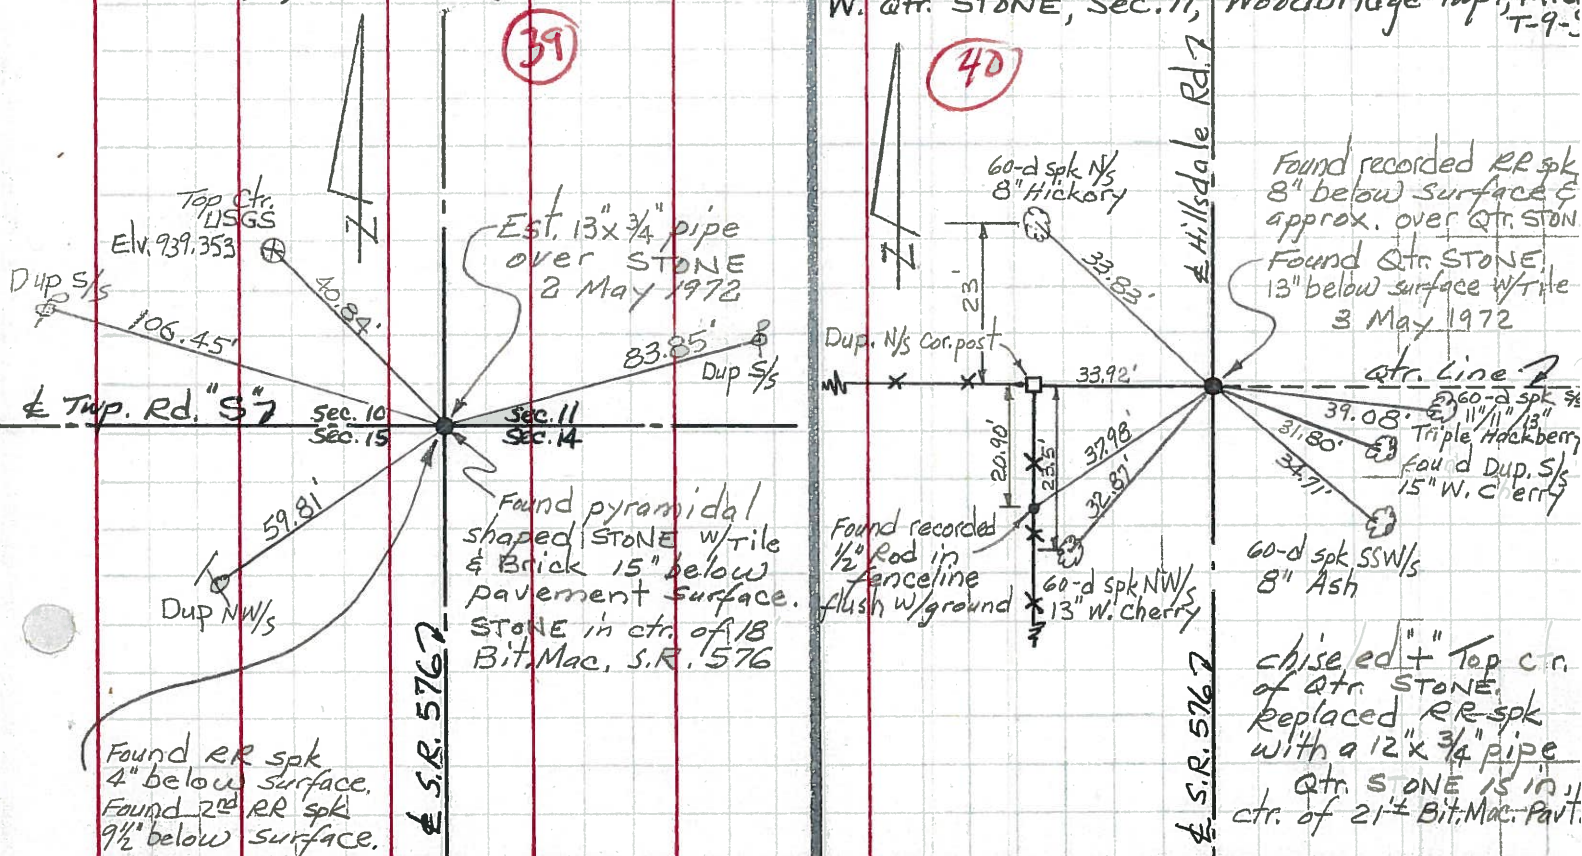 39
Top Ctr.
USGS
Elv. 939.353
Dup S/s
106.45'
40.84'
Est. 13"x 3/4" pipe
over STONE
2 May 1972
83.85'
Dup S/s
℄ Twp. Rd. "S"
Sec. 10
Sec. 15
Sec. 11
Sec. 14
59.81'
Dup NW/s
Found pyramidal
shaped STONE w/Tile
& Brick 15" below
pavement surface.
STONE in ctr. of 18
Bit. Mac. S.R. 576
Found RR spk
4" below surface.
Found 2nd RR spk
9½" below surface.
℄ S.R. 576
N
W. Qtr. STONE, Sec. 11, Woodbridge Twp.,
T-9-
40
N
℄ Hillsdale Rd.
60-d spk N/s
8" Hickory
33.83'
23'
Found recorded RR spk
8" below surface &
approx. over Qtr. STON
Found Qtr. STONE
13" below surface W/Tile
3 May 1972
Dup. N/s Cor. post
33.92'
Qtr. Line
39.08'
60-d spk S/s
11"/11"/13"
Triple Hackberry
31.80'
fou d Dup. S/s
15" W. C erry
34.71'
60-d spk SSW/s
8" Ash
20.90'
23.5'
37.98'
32.87'
Found recorded
½" Rod in
fenceline
flush w/ground
60-d spk NW/s
13" W. Cherry
chise ed "+" Top c r.
of Qtr. STONE.
Replaced RR spk
with a 12"x 3/4" pipe
Qtr. STONE is in
ctr. of 21'± Bit. Mac. Pavt.
℄ S.R. 576